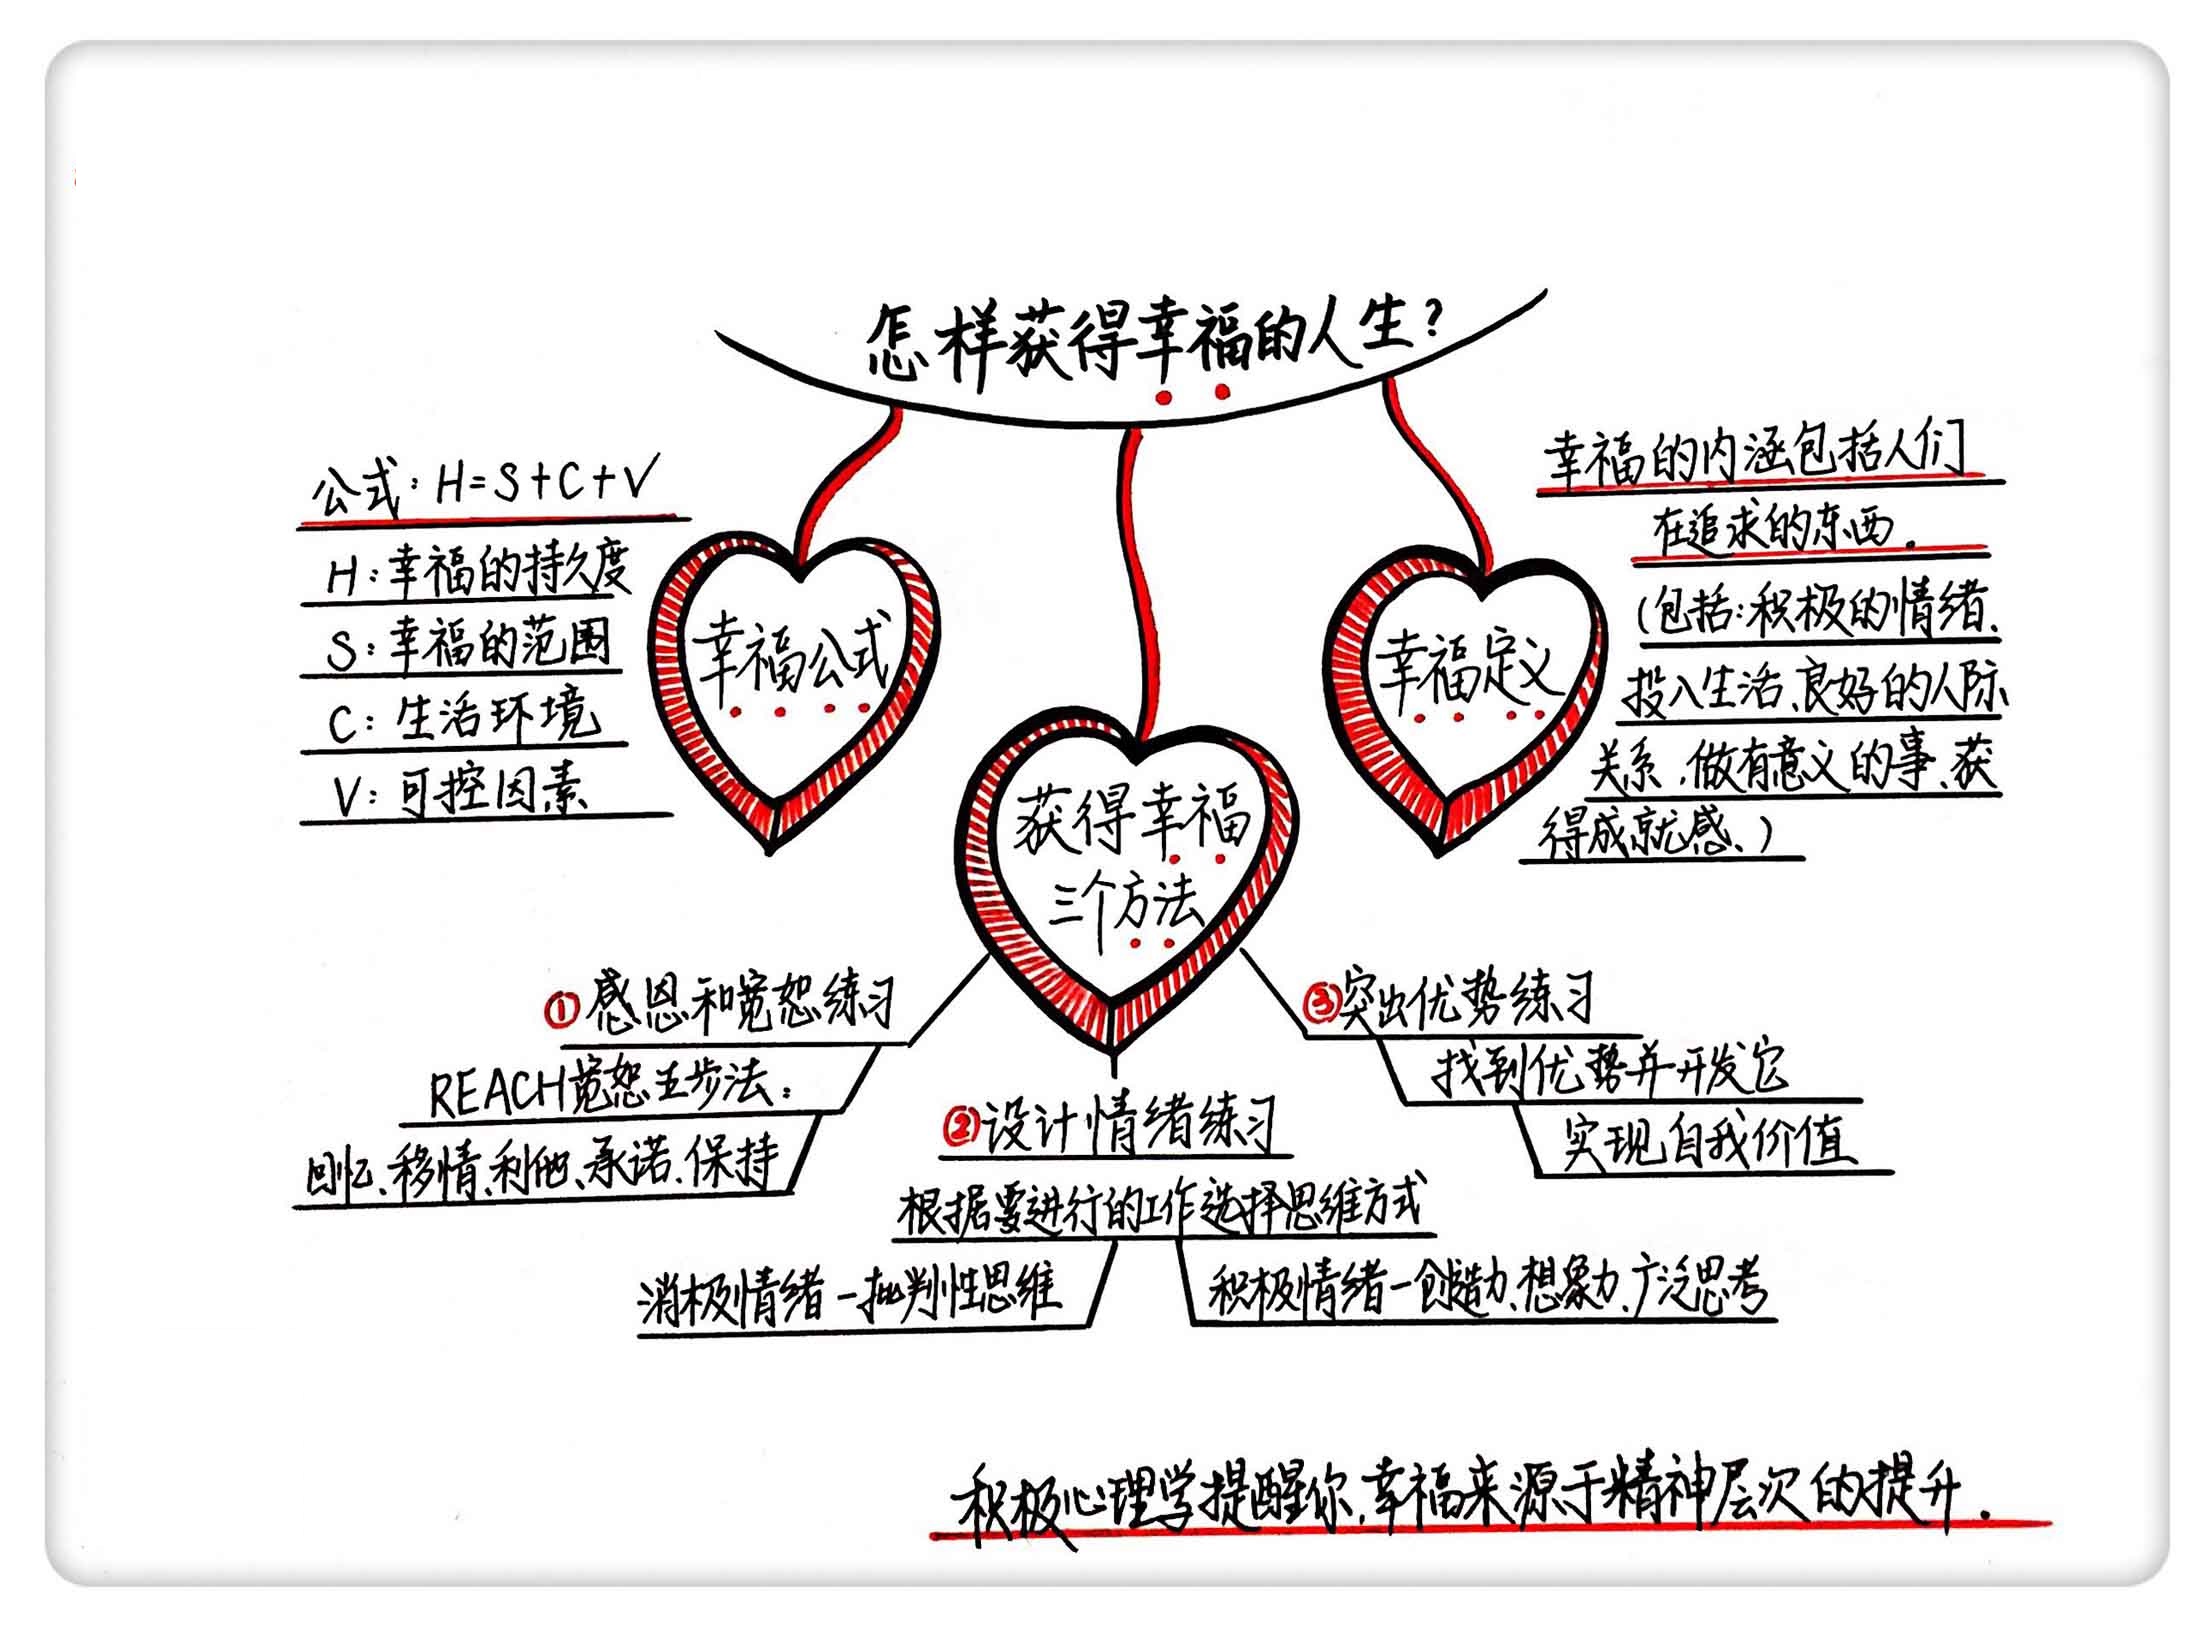 怎样获得幸福的人生?
公式:H=S+C+V
H:幸福的持久度
S:幸福的范围
C:生活环境
V:可控因素
幸福公式
获得幸福
三个方法
幸福定义
幸福的内涵包括人们
在追求的东西.
(包括:积极的情绪、
投入生活、良好的人际
关系、做有意义的事、获
得成就感、)
①感恩和宽恕练习
REACH宽恕五步法:
回忆、移情、利他、承诺、保持
②设计情绪练习
根据要进行的工作选择思维方式
消极情绪-批判性思维
积极情绪-创造力、想象力、广泛思考
③突出优势练习
找到优势并开发它
实现自我价值
积极心理学提醒你,幸福来源于精神层次的提升.